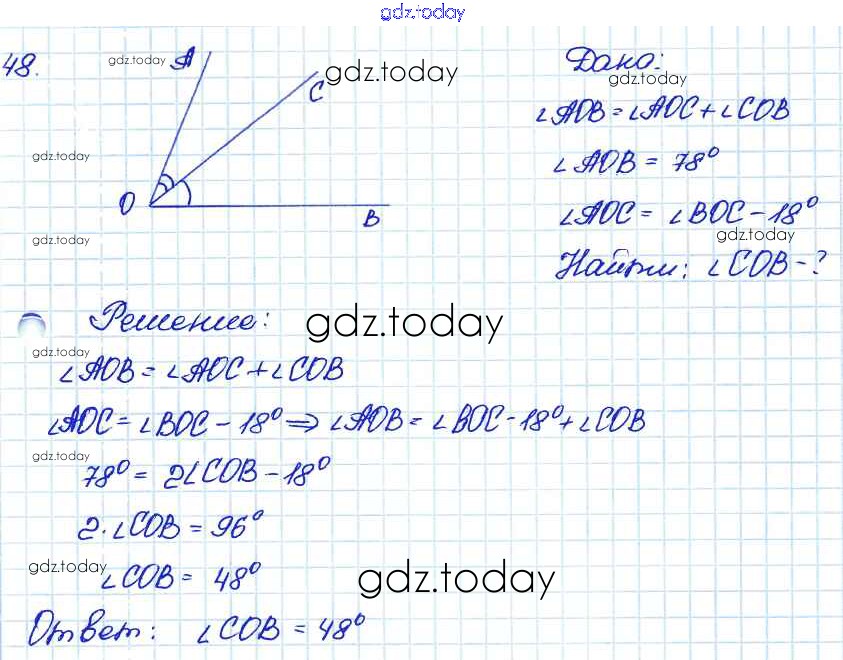 gdz.today
48.
gdz.today
A
gdz.today
C
Дано:
gdz.today
∠AOB = ∠AOC + ∠COB
gdz.today
∠AOB = 78°
O
B
∠AOC = ∠BOC - 18°
gdz.today
gdz.today
Найти: ∠COB - ?
Решение:
gdz.today
gdz.today
∠AOB = ∠AOC + ∠COB
∠AOC = ∠BOC - 18° ⇒ ∠AOB = ∠BOC - 18° + ∠COB
gdz.today
78° = 2∠COB - 18°
2·∠COB = 96°
gdz.today
∠COB = 48°
gdz.today
Ответ: ∠COB = 48°